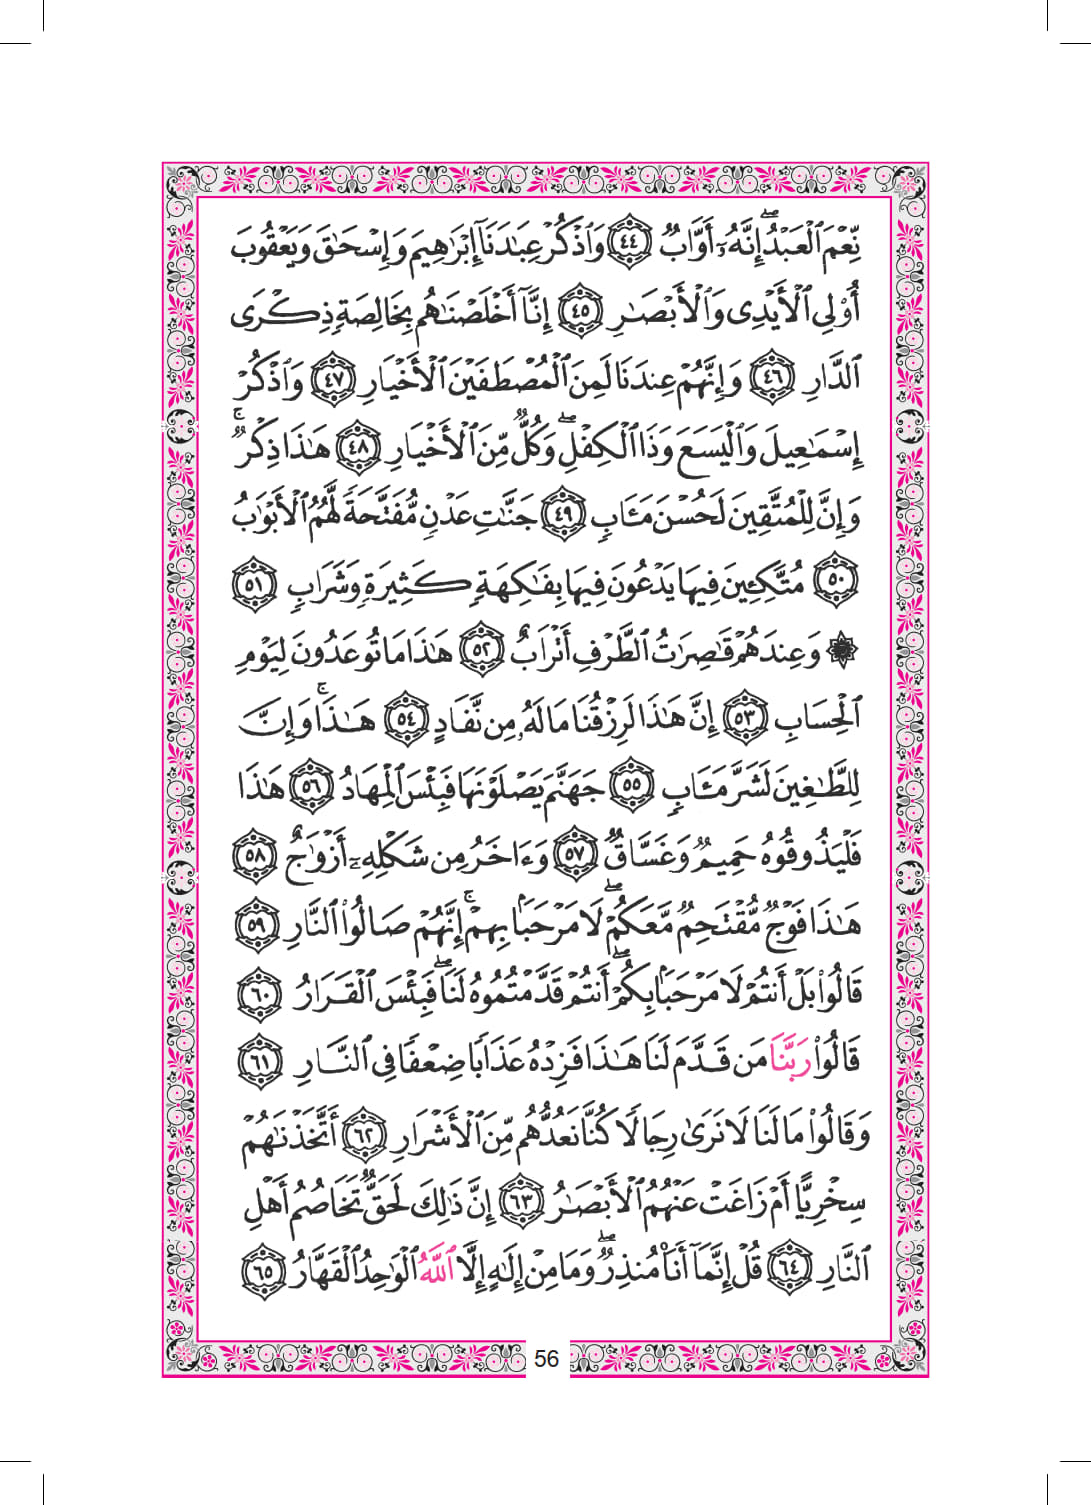 نِّعْمَ ٱلْعَبْدُ ۖ إِنَّهُۥٓ أَوَّابٌ ﴿٤٤﴾ وَٱذْكُرْ عِبَٰدَنَآ إِبْرَٰهِيمَ وَإِسْحَٰقَ وَيَعْقُوبَ
أُو۟لِى ٱلْأَيْدِى وَٱلْأَبْصَٰرِ ﴿٤٥﴾ إِنَّآ أَخْلَصْنَٰهُم بِخَالِصَةٍ ذِكْرَى
ٱلدَّارِ ﴿٤٦﴾ وَإِنَّهُمْ عِندَنَا لَمِنَ ٱلْمُصْطَفَيْنَ ٱلْأَخْيَارِ ﴿٤٧﴾ وَٱذْكُرْ
إِسْمَٰعِيلَ وَٱلْيَسَعَ وَذَا ٱلْكِفْلِ ۖ وَكُلٌّ مِّنَ ٱلْأَخْيَارِ ﴿٤٨﴾ هَٰذَا ذِكْرٌ ۚ
وَإِنَّ لِلْمُتَّقِينَ لَحُسْنَ مَـَٔابٍ ﴿٤٩﴾ جَنَّٰتِ عَدْنٍ مُّفَتَّحَةً لَّهُمُ ٱلْأَبْوَٰبُ
﴿٥٠﴾ مُتَّكِـِٔينَ فِيهَا يَدْعُونَ فِيهَا بِفَٰكِهَةٍ كَثِيرَةٍ وَشَرَابٍ ﴿٥١﴾
۞ وَعِندَهُمْ قَٰصِرَٰتُ ٱلطَّرْفِ أَتْرَابٌ ﴿٥٢﴾ هَٰذَا مَا تُوعَدُونَ لِيَوْمِ
ٱلْحِسَابِ ﴿٥٣﴾ إِنَّ هَٰذَا لَرِزْقُنَا مَا لَهُۥ مِن نَّفَادٍ ﴿٥٤﴾ هَٰذَا ۚ وَإِنَّ
لِلطَّٰغِينَ لَشَرَّ مَـَٔابٍ ﴿٥٥﴾ جَهَنَّمَ يَصْلَوْنَهَا فَبِئْسَ ٱلْمِهَادُ ﴿٥٦﴾ هَٰذَا
فَلْيَذُوقُوهُ حَمِيمٌ وَغَسَّاقٌ ﴿٥٧﴾ وَءَاخَرُ مِن شَكْلِهِۦٓ أَزْوَٰجٌ ﴿٥٨﴾
هَٰذَا فَوْجٌ مُّقْتَحِمٌ مَّعَكُمْ ۖ لَا مَرْحَبًۢا بِهِمْ ۚ إِنَّهُمْ صَالُوا۟ ٱلنَّارِ ﴿٥٩﴾
قَالُوا۟ بَلْ أَنتُمْ لَا مَرْحَبًۢا بِكُمْ ۖ أَنتُمْ قَدَّمْتُمُوهُ لَنَا ۖ فَبِئْسَ ٱلْقَرَارُ ﴿٦٠﴾
قَالُوا۟ رَبَّنَا مَن قَدَّمَ لَنَا هَٰذَا فَزِدْهُ عَذَابًا ضِعْفًا فِى ٱلنَّارِ ﴿٦١﴾
وَقَالُوا۟ مَا لَنَا لَا نَرَىٰ رِجَالًا كُنَّا نَعُدُّهُم مِّنَ ٱلْأَشْرَارِ ﴿٦٢﴾ أَتَّخَذْنَٰهُمْ
سِخْرِيًّا أَمْ زَاغَتْ عَنْهُمُ ٱلْأَبْصَٰرُ ﴿٦٣﴾ إِنَّ ذَٰلِكَ لَحَقٌّ تَخَاصُمُ أَهْلِ
ٱلنَّارِ ﴿٦٤﴾ قُلْ إِنَّمَآ أَنَا۠ مُنذِرٌ ۖ وَمَا مِنْ إِلَٰهٍ إِلَّا ٱللَّهُ ٱلْوَٰحِدُ ٱلْقَهَّارُ ﴿٦٥﴾
56